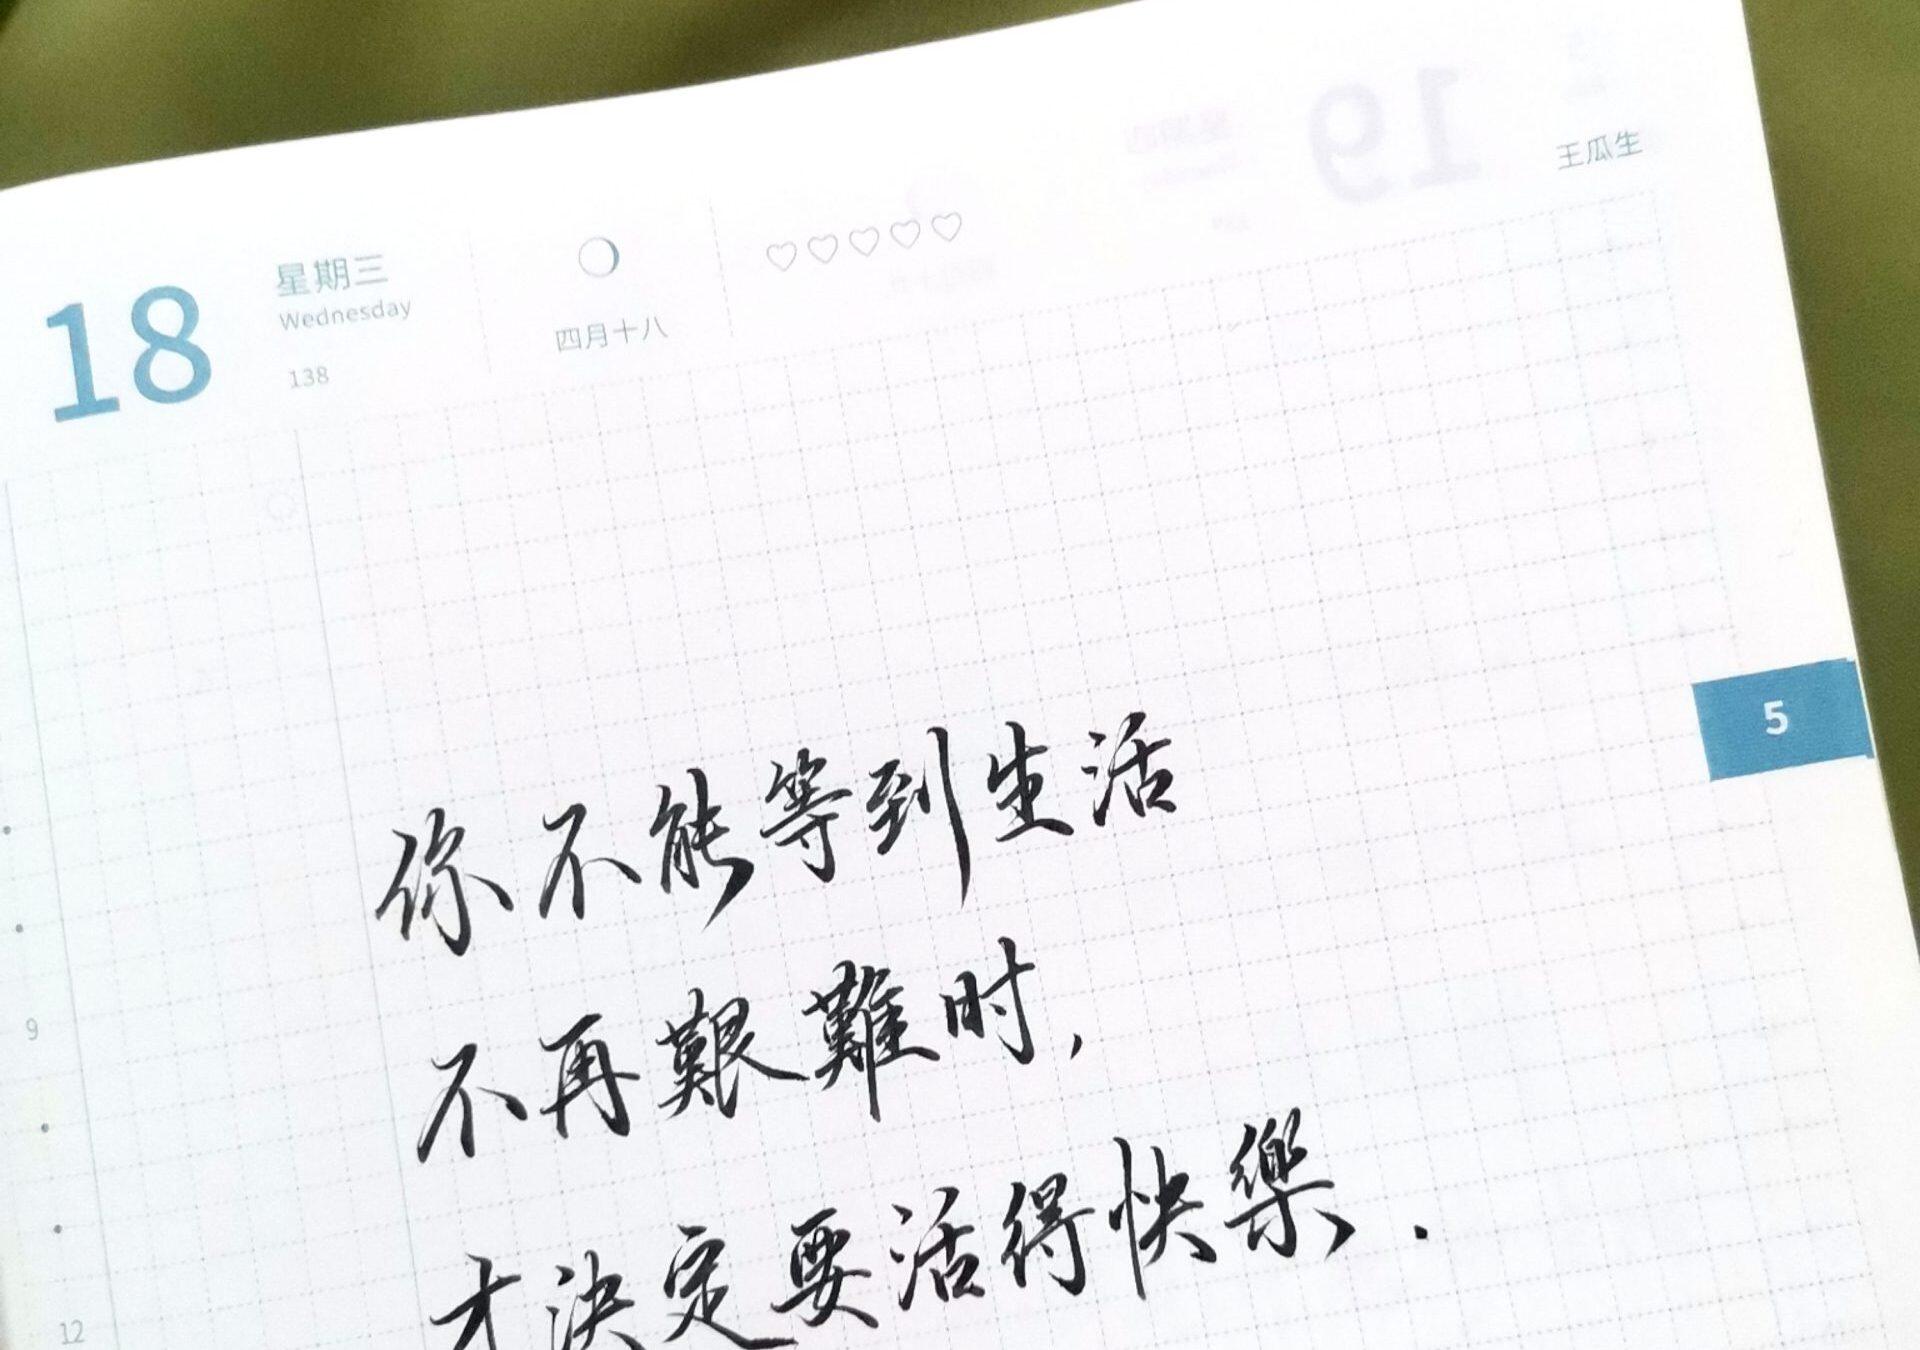 王瓜生
18
星期三
Wednesday
138
四月十八
19
5
你不能等到生活
不再艱難时,
才決定要活得快樂.
9
12